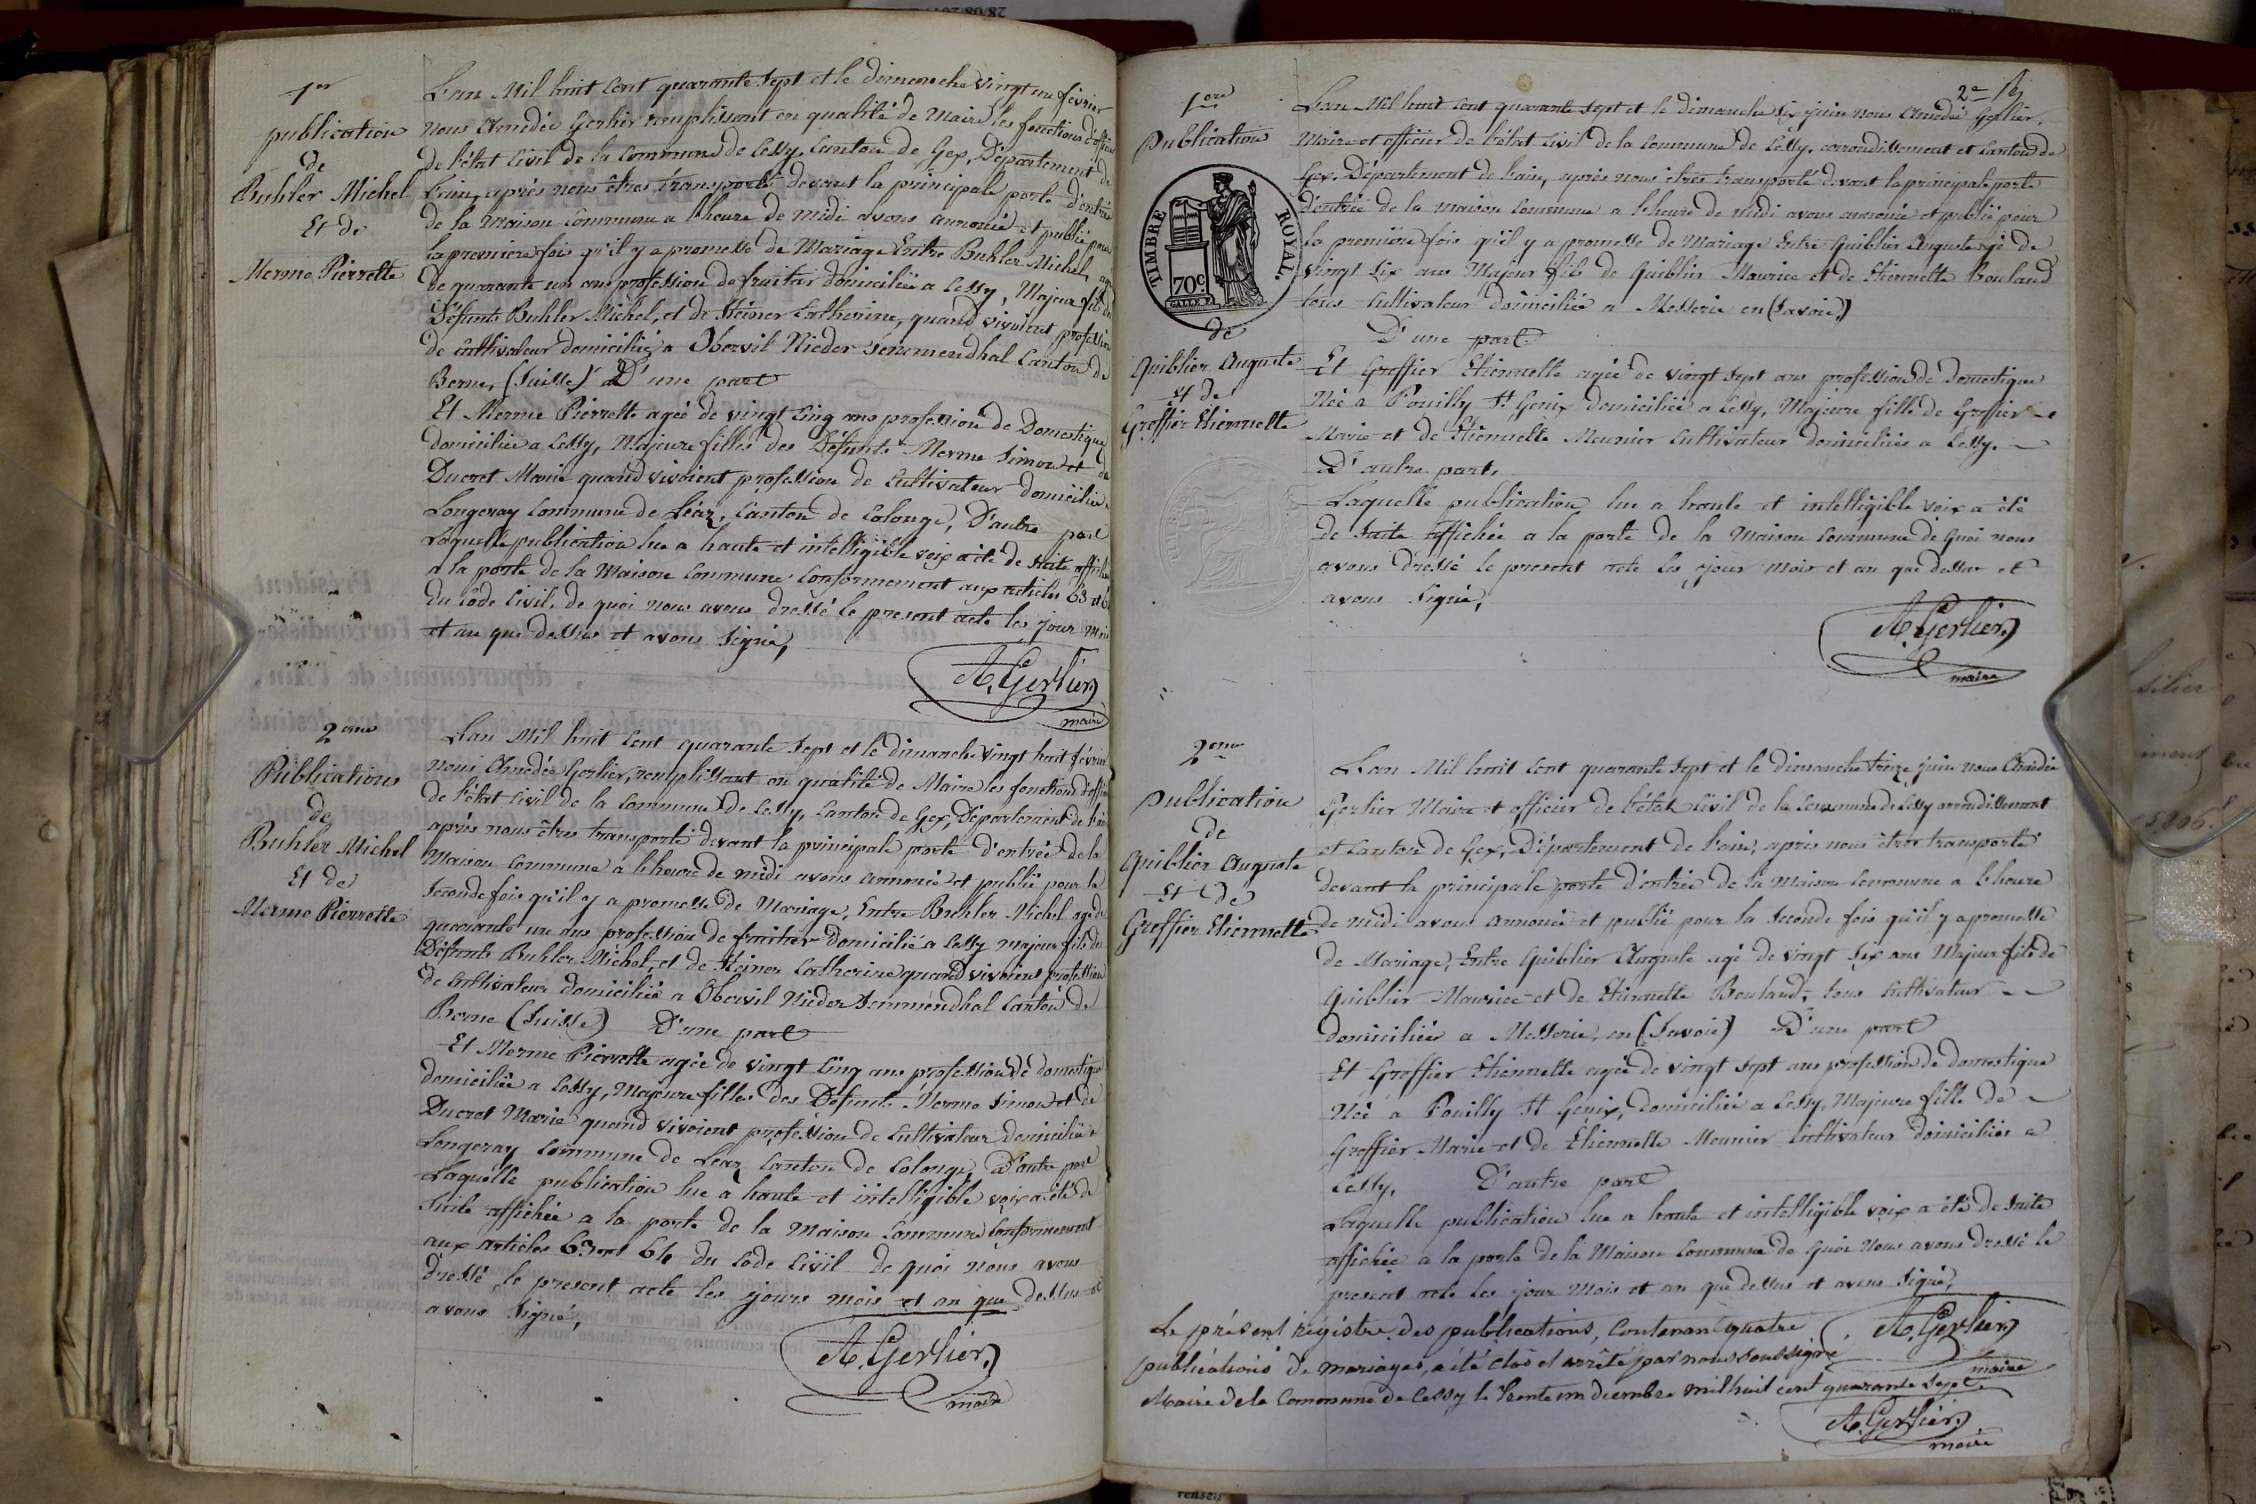 1er
publication
de
Buhler Michel
Et de
Merme Pierrette
L'an Mil huit Cent quarante Sept et le dimanche vingt un février
nous Amédée Gerlier remplissant en qualité de Maire les fonctions d'officier
de l'état Civil de la Commune de Cessy, Canton de Gex, Département de
l'ain, après nous êtres transporté devant la principale porte d'entrée
de la Maison Commune a l'heure de midi avons annoncé et publié pour
la premiere fois qu'il y a promesse de Mariage Entre Buhler Michel, agé
de quarante un ans profession de fruitier domiciliée a Cessy, Majeur fils des
Défunts Buhler Michel, et de Steiner Catherine, quand vivoient profession
de cultivateur domiciliéz a Obervil Nieder Semmendhal Canton de
Berne, (Suisse) D'une part
Et Merme Pierrette agée de vingt Cinq ans profession de Domestique
domiciliée a Cessy, Majeure filles des Défunts Merme Simon et de
Ducret Marie quand vivoient profession de Cultivateur domiciliés
Longeray Commune de Léaz, Canton de Colonge, D'autre part
Laquelle publication lue a haute et intelligible voix a été de Suite affichée
a la porte de la Maison Commune Conformement aux articles 63 et 64
du Côde Civil, de quoi nous avons dressé le present acte les jour mois
et an que dessus et avons Signé,
A. Gerlier
maire
2eme
Publications
de
Buhler Michel
Et de
Merme Pierrette
L'an Mil huit Cent quarante Sept et le dimanche vingt huit février
nous Amédée Gerlier, remplissant en qualité de Maire les fonctions d'officier
de l'état Civil de la Commune de Cessy, Canton de Gex, Département de l'ain
après nous êtres transporté devant la principale porte d'entrée de la
Maison Commune a l'heure de midi avons annoncé et publié pour la
Seconde fois qu'il y a promesse de Mariage, Entre Buhler Michel agé de
quarante un ans profession de fruitier domicilié a Cessy majeur fils des
Défunts Buhler Michel, et de Steiner Catherine quand vivoient profession
de Cultivateur domiciliée a Obervil Nieder Semmendhal Canton de
Berne (Suisse) D'une part
Et Merme Pierrette agée de vingt Cinq ans profession de domestique
domiciliée a Cessy, Majeure filles des Défunts Merme Simon et de
Ducret Marie quand vivoient profession de Cultivateur domiciliés
Longeray Commune de Léaz Canton de Colonge, D'autre part
Laquelle publication lue a haute et intelligible voix a été de
Suite affichée a la porte de la Maison Commune Conformement
aux articles 63 et 64 du Code Civil de quoi nous avons
dressé le present acte les jours mois et an que dessus et
avons Signé,
A. Gerlier
maire
2e
1ere
Publication
TIMBRE ROYAL.
70c.
de
Quiblier Auguste
Et de
Greffier Etiennette
L'an Mil huit Cent quarante Sept et le dimanche Six juin nous Amédée Gerlier,
Maire et officier de l'état Civil de la Commune de Cessy, arrondissement et Canton de
Gex, Département de l'ain, après nous êtres transporté devant la principale porte
d'entrée de la maison Commune a l'heure de midi avons annoncé et publié pour
la première fois qu'il y a promesse de Mariage Entre Quiblier Auguste agé de
vingt Six ans Majeur fils de Quiblier Maurice et de Etiennette Bouland
tous Cultivateur domiciliée a Messerie en (Savoie)
D'une part
Et Greffier Etiennette agée de vingt Sept ans profession de Domestique
Née a Pouilly St Genix domiciliée a Cessy, Majeure fille de Greffier
Marie et de Etiennette Meunier Cultivateur domiciliés a Cessy.
D'autre part,
Laquelle publication lue a haute et intelligible voix a été
de Suite affichée a la porte de la Maison Commune de quoi nous
avons dressé le present acte les jour mois et an que dessus et
avons Signé,
A. Gerlier
maire
2eme
publication
de
Quiblier Auguste
Et de
Greffier Etiennette
L'an Mil huit Cent quarante Sept et le dimanche treize juin nous Amédée
Gerlier Maire et officier de l'état Civil de la Commune de Cessy arrondissement
et Canton de Gex, Département de l'ain, après nous êtres transporté
devant la principale porte d'entrée de la Maison Commune a l'heure
de midi avons annoncé et publié pour la Seconde fois qu'il y a promesse
de Mariage, Entre Quiblier Auguste agé de vingt Six ans Majeur fils de
Quiblier Maurice et de Etiennette Bouland, tous Cultivateur
domiciliée a Messerie, en (Savoie) D'une part
Et Greffier Etiennette agée de vingt Sept ans profession de domestique
Née a Pouilly St Genix, domiciliée a Cessy, Majeure fille de
Greffier Marie et de Etiennette Meunier Cultivateur domiciliés a
Cessy, D'autre part
Laquelle publication lue a haute et intelligible voix a été de Suite
affichée a la porte de la Maison Commune de quoi nous avons dressé le
present acte les jour mois et an que dessus et avons Signé,
A. Gerlier
maire
Le présent régistre des publications, Contenant quatre
publications de mariages, a été clos et arrêté par nous soussigné
Maire de la Commune de Cessy le trente un decembre mil huit cent quarante Sept.
A. Gerlier
maire